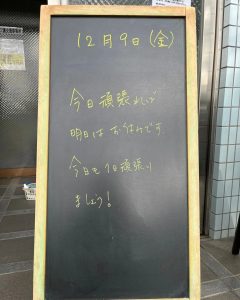 12月9日(金)
今日頑張れば
明日はお休みです
今日も1日頑張り
ましょう!